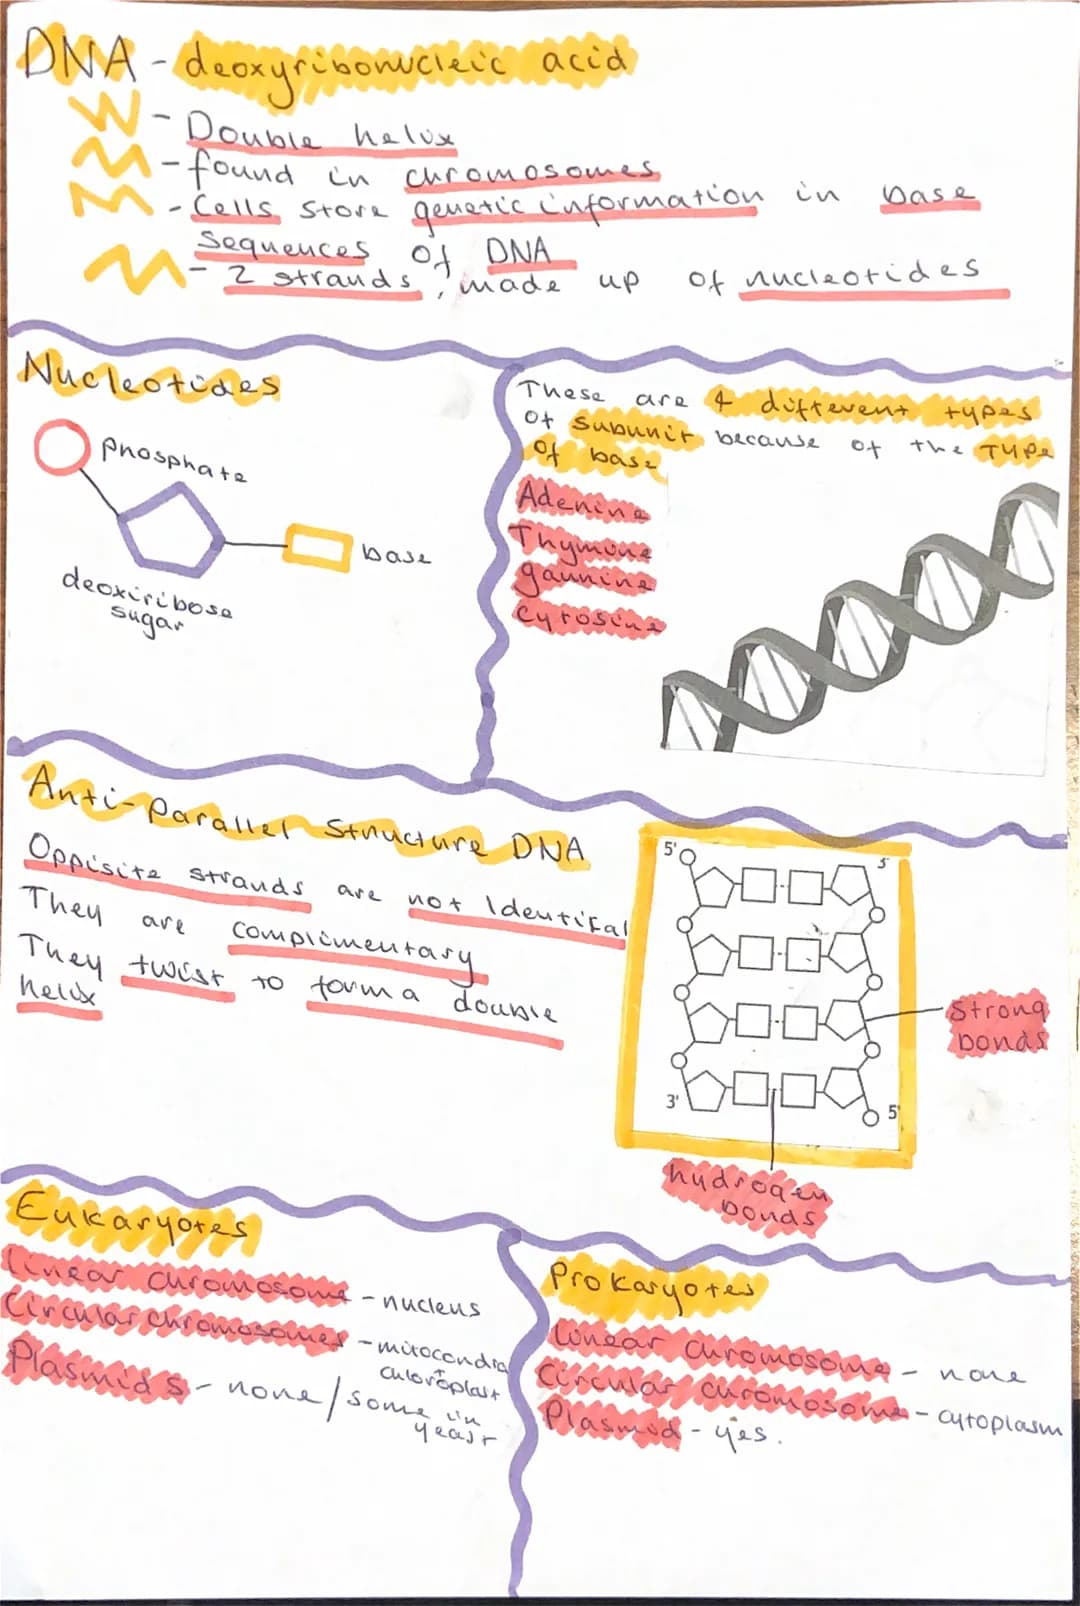 DNA - deoxyribonucleic acid
- Double helix
- found in chromosomes
- Cells store genetic information in base
sequences of DNA
- 2 strands, made up of nucleotides
Nucleotides
phosphate
base
deoxiribose
sugar
These are 4 different types
of subunit because of the type
of base
Adenine
Thymine
gaunine
cytosine
Anti-Parallel Structure DNA
Oppisite strands are not Identical
They are complimentary
They twist to form a double
helix
5'
3'
3'
5'
Strong
bonds
hydrogen
bonds
Eukaryotes
linear chromosome - nucleus
Circular chromosomes - mitocondria
chloroplast
Plasmids - none/some in
yeast
Prokaryotes
Linear chromosome - none
Circular chromosome - cytoplasm
Plasmid - yes.